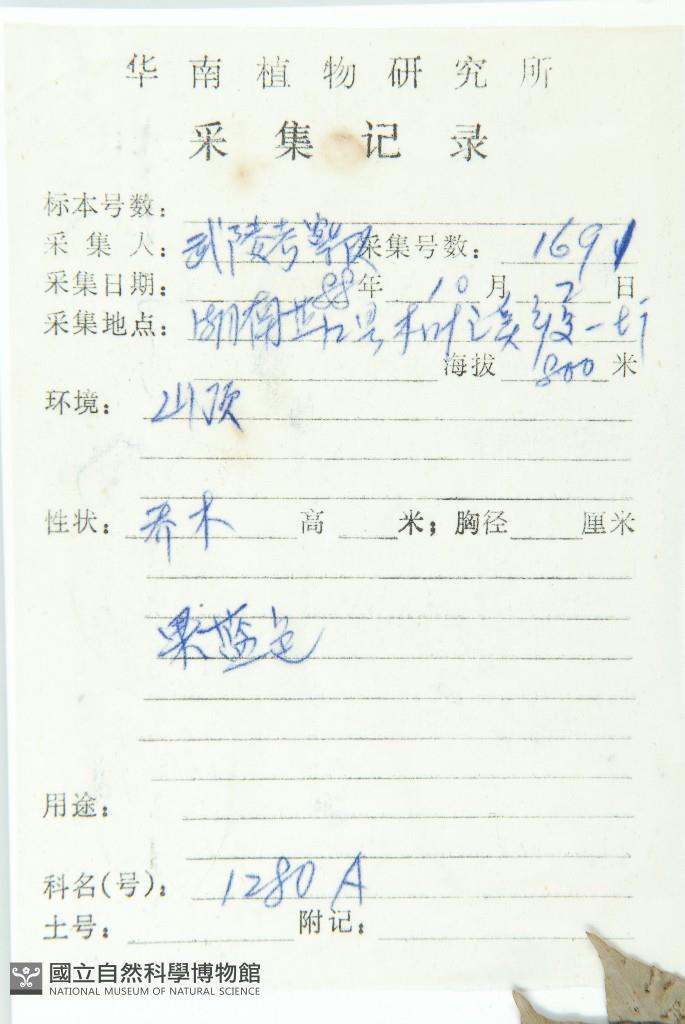 华南植物研究所
采集记录
标本号数：
采集人：武陵考察队 采集号数：1691
采集日期：88年10月2日
采集地点：湖南芷江县木叶溪
海拔800米
环境：山顶
性状：乔木 高 米；胸径 厘米
果蓝色
用途：
科名(号)：1280A
土号： 附记：
國立自然科學博物館
NATIONAL MUSEUM OF NATURAL SCIENCE